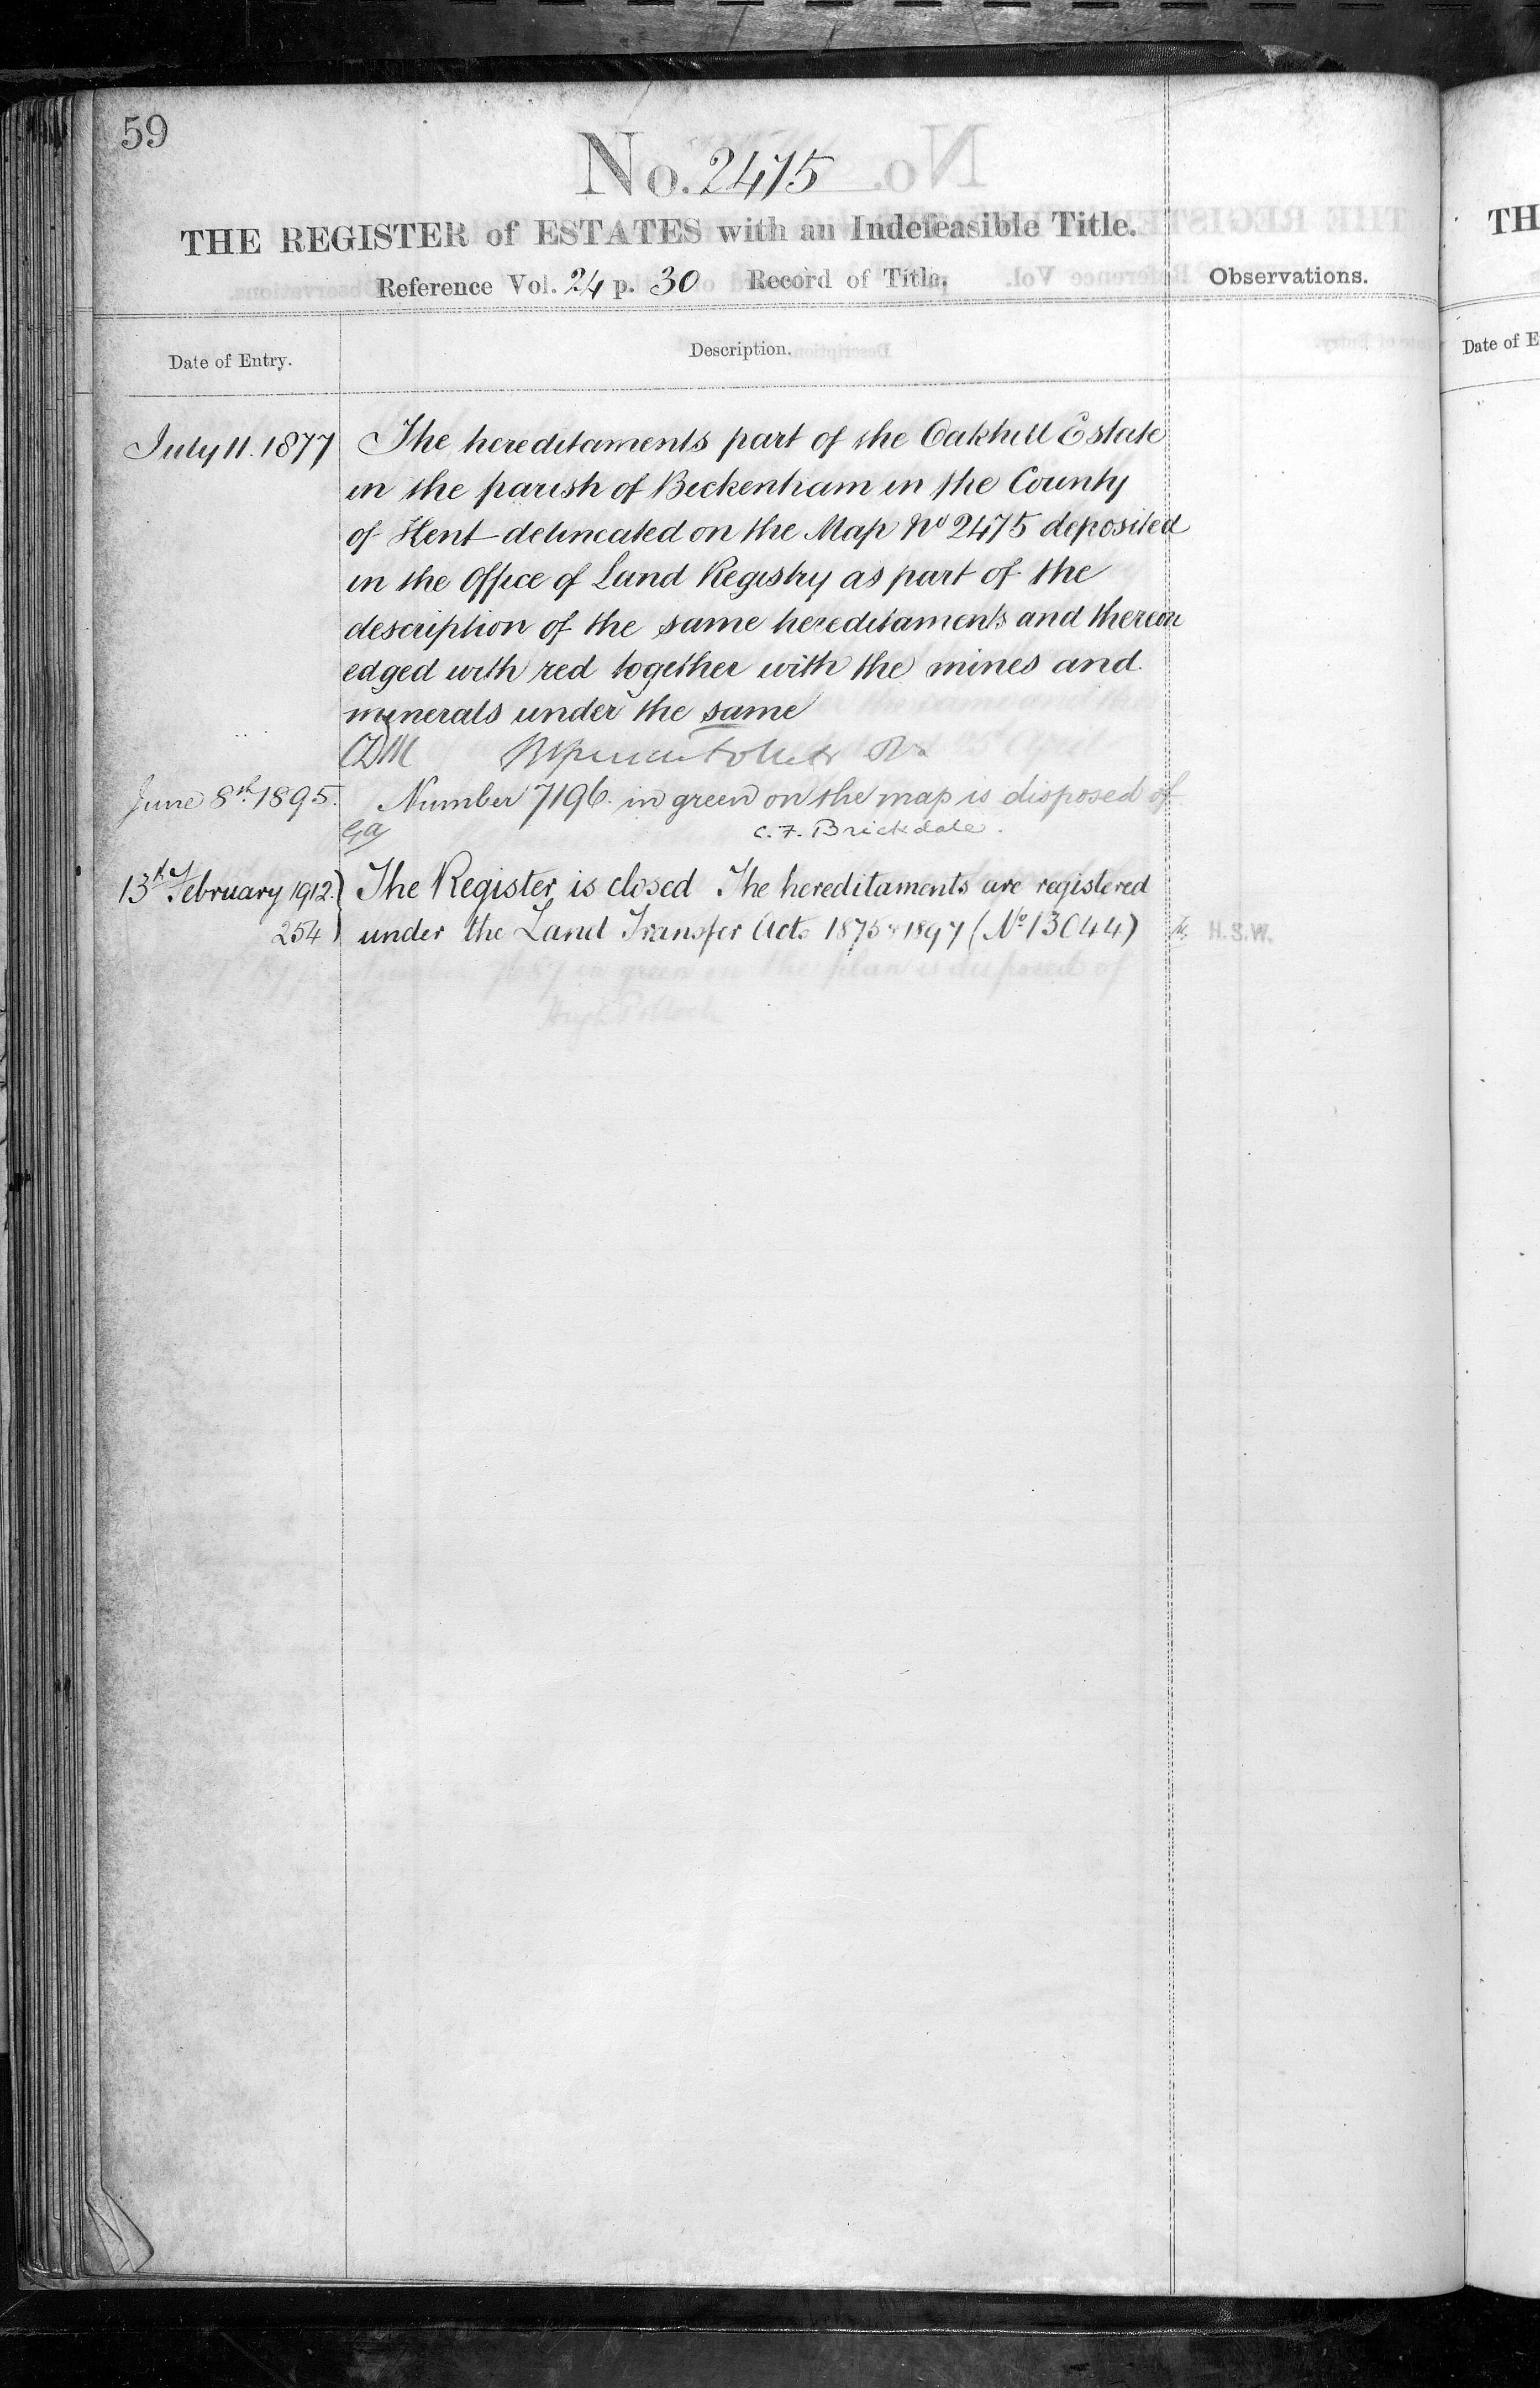 59
No. 2475
THE REGISTER of ESTATES with an Indefeasible Title.
Reference Vol. 24 p. 30 Record of Title.
Observations.
Date of Entry.
Description.
July 11. 1877 The hereditaments part of the Oakhill Estate
in the parish of Beckenham in the County
of Kent delineated on the Map No 2475 deposited
in the Office of Land Registry as part of the
description of the same hereditaments and therein
edged with red together with the mines and
minerals under the same
June 8th 1895. Number 7196 in green on the map is disposed of
C. F. Brickdale.
13th February 1912.) The Register is closed The hereditaments are registered
254) under the Land Transfer Acts 1875 & 1897 (No 13044) H.S.W.
TH
Date of E